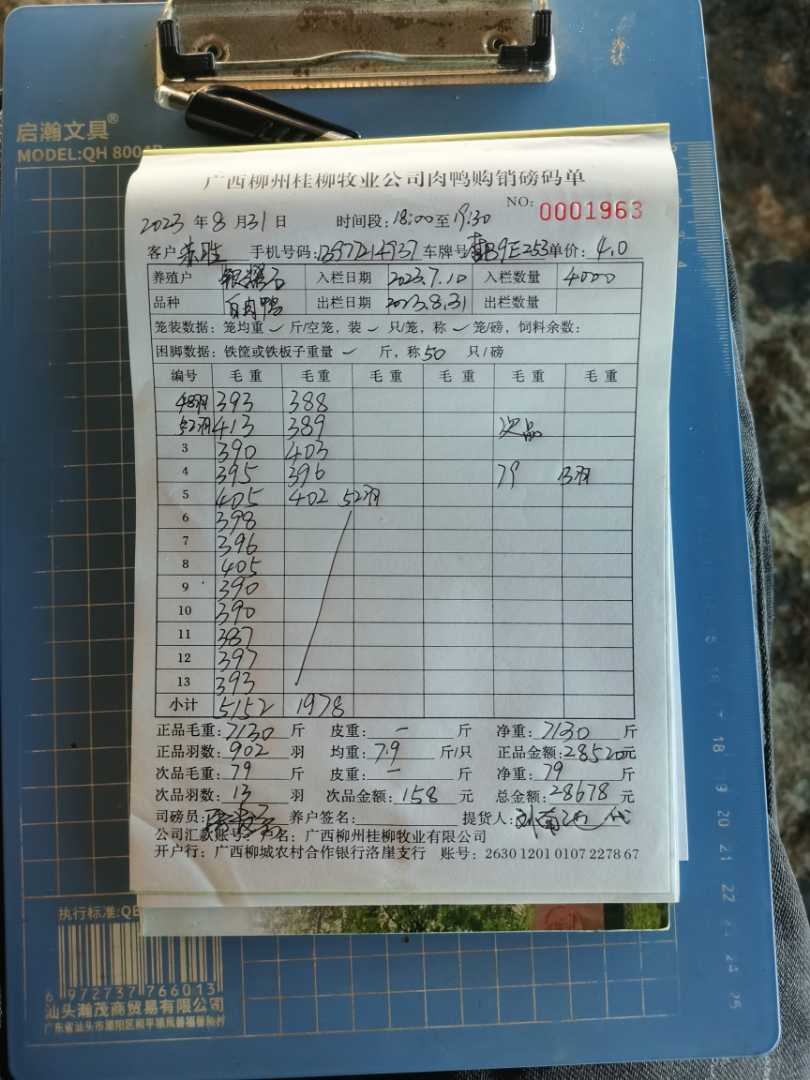 启瀚文具®
MODEL:QH 8001B
广西柳州桂柳牧业公司肉鸭购销磅码单
NO: 0001963
2023 年 8 月 31 日 时间段: 18:00 至 19:30
客户 手机号码: 13977214937 车牌号 B9E253 单价: 4.0
养殖户 入栏日期 2023.7.10 入栏数量 4000
品种 白肉鸭 出栏日期 2023.8.31 出栏数量
笼装数据: 笼均重 ✓ 斤/空笼, 装 ✓ 只/笼, 称 ✓ 笼/磅, 饲料余数:
困脚数据: 铁筐或铁板子重量 ✓ 斤, 称 50 只/磅
编号 毛重 毛重 毛重 毛重 毛重 毛重
48羽 393 388
52羽 413 389 次品
3 390 403
4 395 396 79 13羽
5 405 402 52羽
6 398
7 396
8 405
9 390
10 390
11 387
12 397
13 393
小计 5152 1978
正品毛重: 7130 斤 皮重: — 斤 净重: 7130 斤
正品羽数: 902 羽 均重: 7.9 斤/只 正品金额: 28520 元
次品毛重: 79 斤 皮重: — 斤 净重: 79 斤
次品羽数: 13 羽 次品金额: 158 元 总金额: 28678 元
司磅员: 养户签名: 提货人: 代
公司汇款账号: 户名: 广西柳州桂柳牧业有限公司
开户行: 广西柳城农村合作银行洛崖支行 账号: 2630 1201 0107 2278 67
执行标准:QB
6 972737 766013
汕头瀚茂商贸易有限公司
18
19
20
21
22